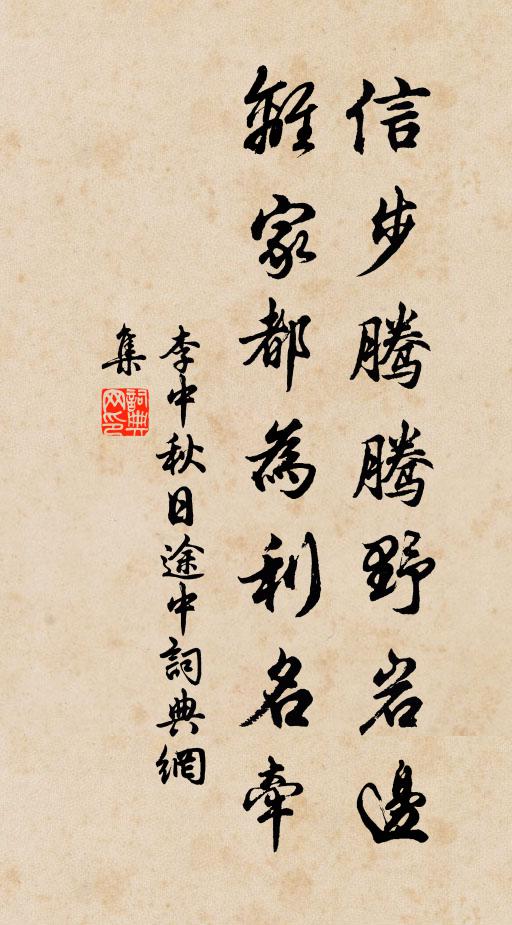 信步腾腾野岩邊
離家都為利名牽
李中秋日途中詞典網
集
詞典
网印